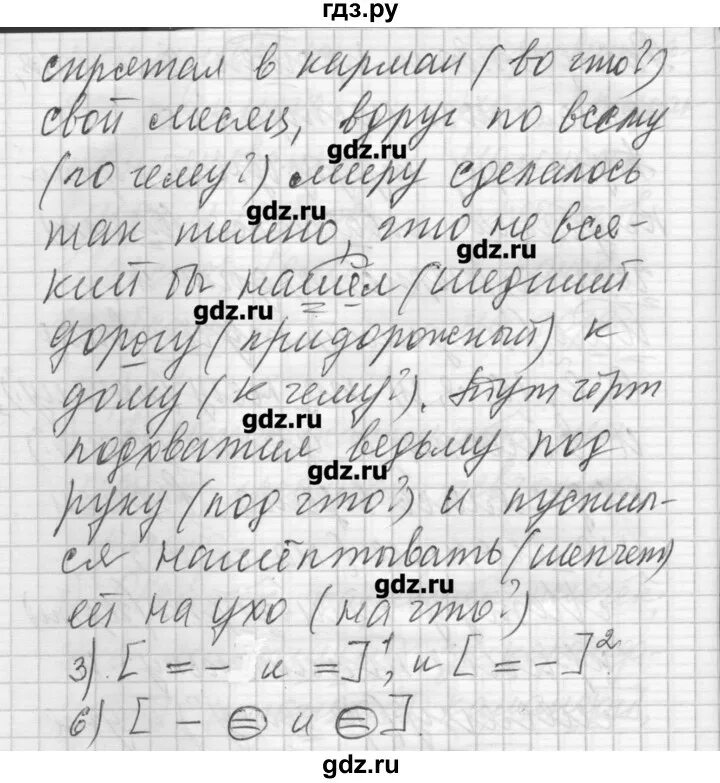 гдз.ру
спрятал в карман (во что?)
свой месяц, вдруг по всему
gdz.ru
(по чему?) миру сделалось
gdz.ru
так темно, что не вся-
gdz.ru
кий бы нашёл (шедший
gdz.ru
дорогу (придорожный) к
дому (к чему?). Тут чёрт
gdz.ru
подхватил ведьму под
gdz.ru
руку (под что?) и пустил-
ся нашёптывать (шепчет)
gdz.ru
ей на ухо (на что?)
3) [ = – и = ]¹, и [ = – ]².
6) [ – = и = ].
gdz.ru